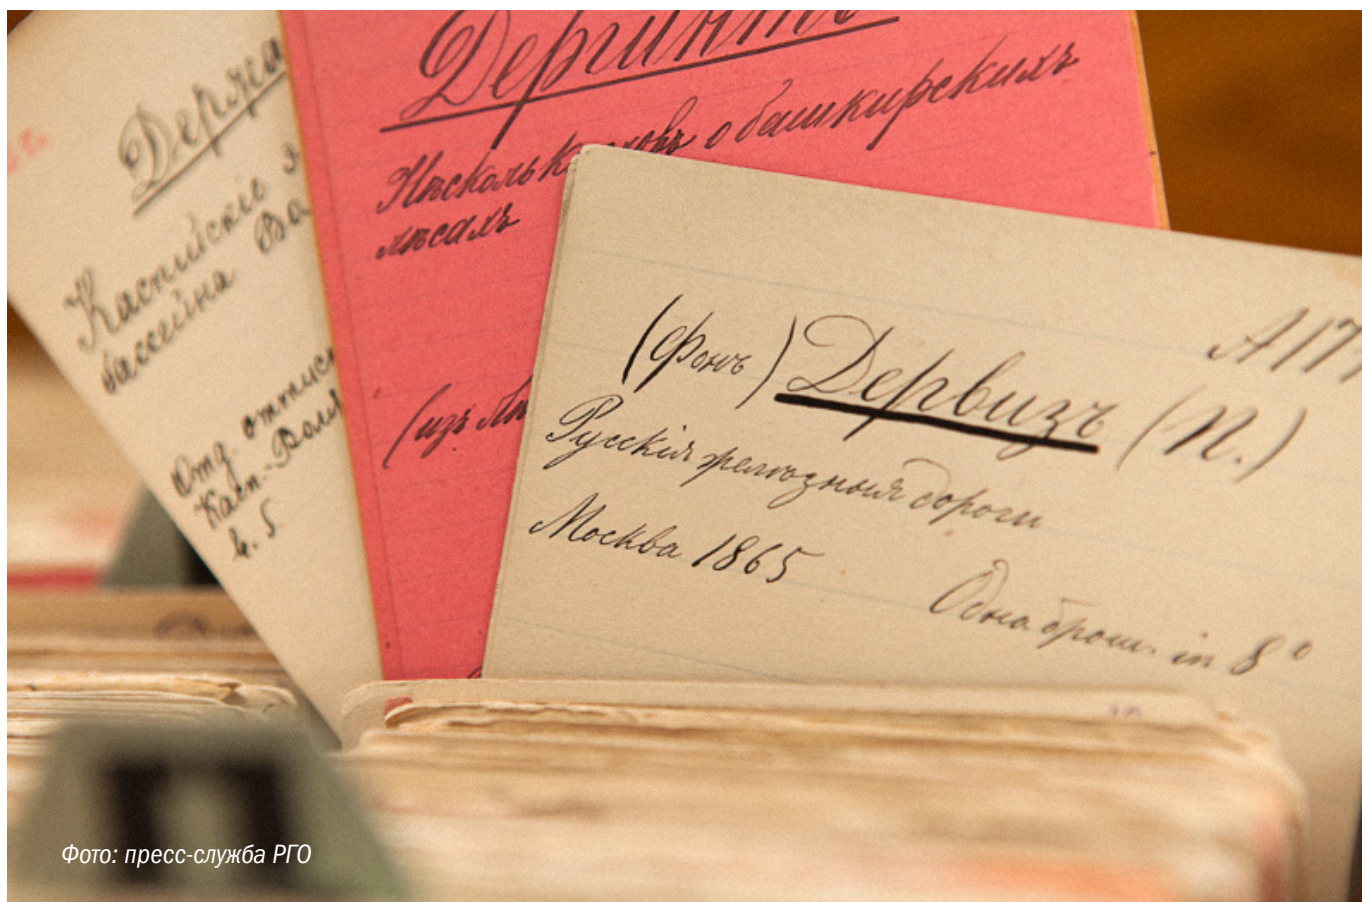 Держа
Каспійскіе
бассейна Во
Отд. оттиск
Касп.-Волж
в. 5
Деринг
Нѣсколько словъ о башкирскихъ
лѣсахъ
(изъ
А 17
(фонъ) Дервизъ (П.)
Русскія желѣзныя дороги
Москва 1865
Одна брош. in 8°
Фото: пресс-служба РГО